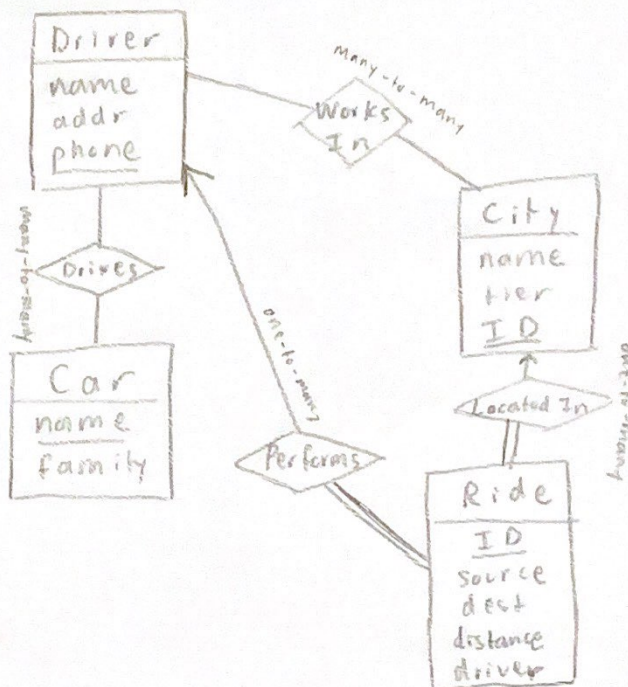 Driver
name
addr
phone
many-to-many
Works
In
City
name
tier
ID
Many-to-Many
Drives
Car
name
family
one-to-many
Performs
Located In
one-to-many
Ride
ID
source
dest
distance
driver